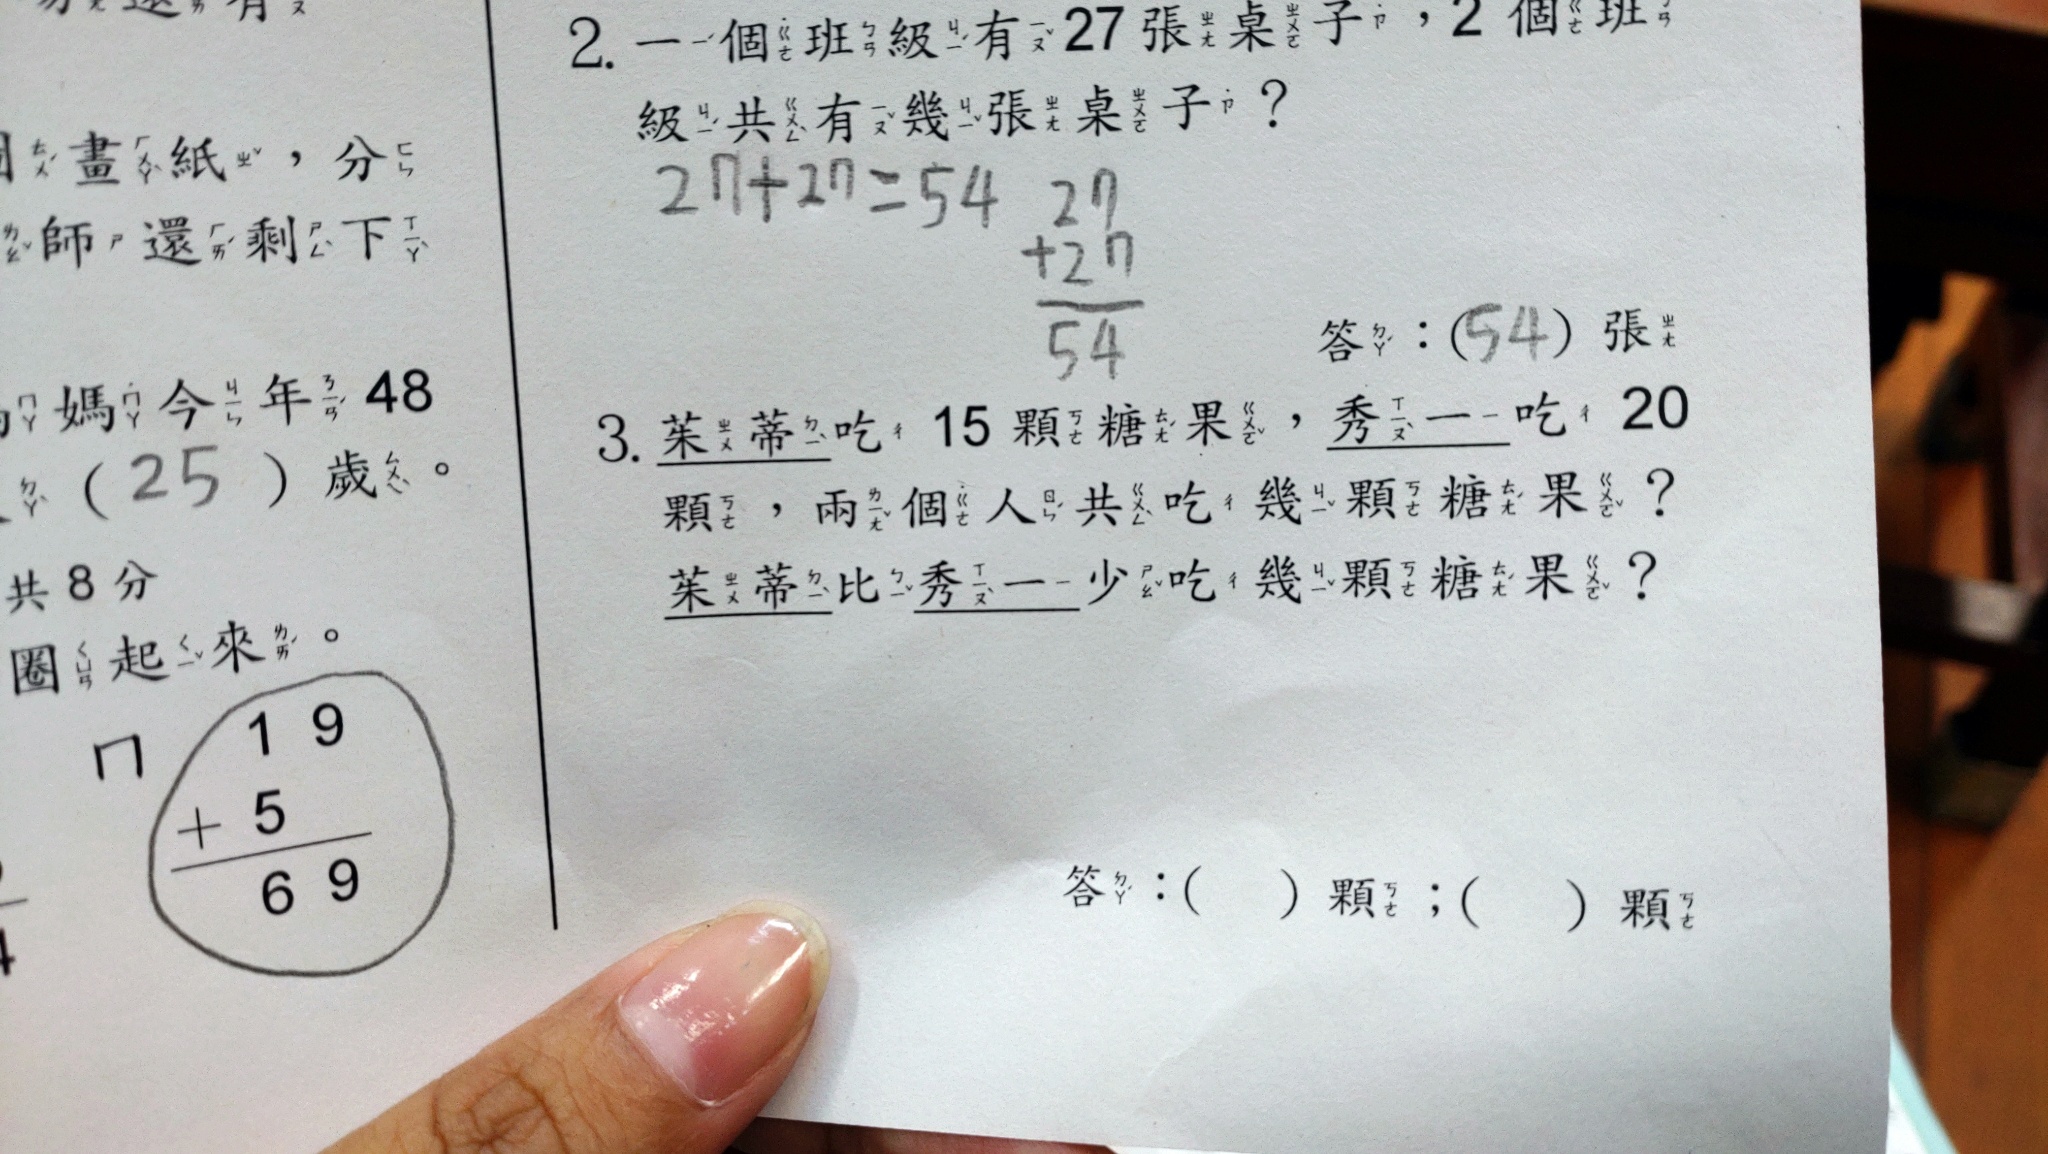 還有
畫紙，分
師還剩下
媽今年 48
( 25 ) 歲。
共 8 分
圈起來。
ㄇ
1 9
+ 5
6 9
2. 一個班級有 27 張桌子，2 個班
級共有幾張桌子？
27+27=54
27
+27
54
答：(54) 張
3. 茱蒂吃 15 顆糖果，秀一吃 20
顆，兩個人共吃幾顆糖果？
茱蒂比秀一少吃幾顆糖果？
答：( ) 顆；( ) 顆